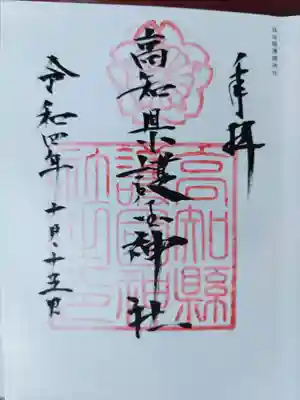 奉拝
高知県護国神社
令和四年 十月十五日
高知縣
護國神
社之印